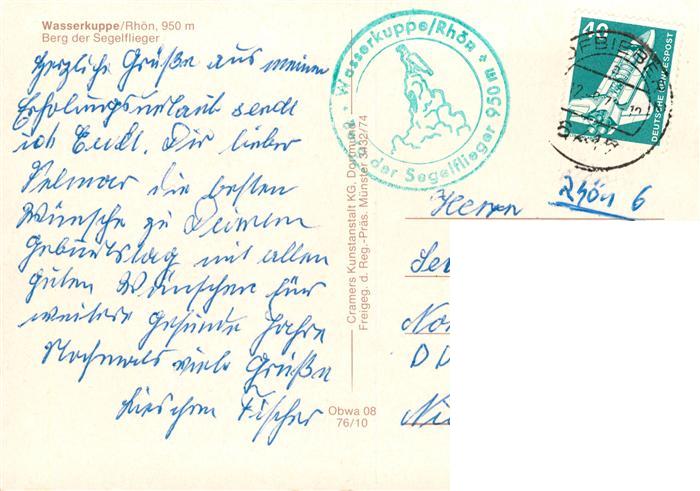 Wasserkuppe/Rhön, 950 m
Berg der Segelflieger
Herzliche Grüße aus meinem
Erholungsurlaub sendt
ich Euch. Dir lieber
Helmar die besten
Wünsche zu Deinem
Geburtstag mit allen
guten Wünschen für
weitere gesunde Jahre
Nochmals viele Grüße
Lieschen Fischer
Wasserkuppe/Rhön
der Segelflieger 950 m
Cramers Kunstanstalt KG, Dortmund
Freigeg. d. Reg.-Präs. Münster 3432/74
Obwa 08
76/10
40
DEUTSCHE BUNDESPOST
HOFBIEBER
Rhön 6
Herrn